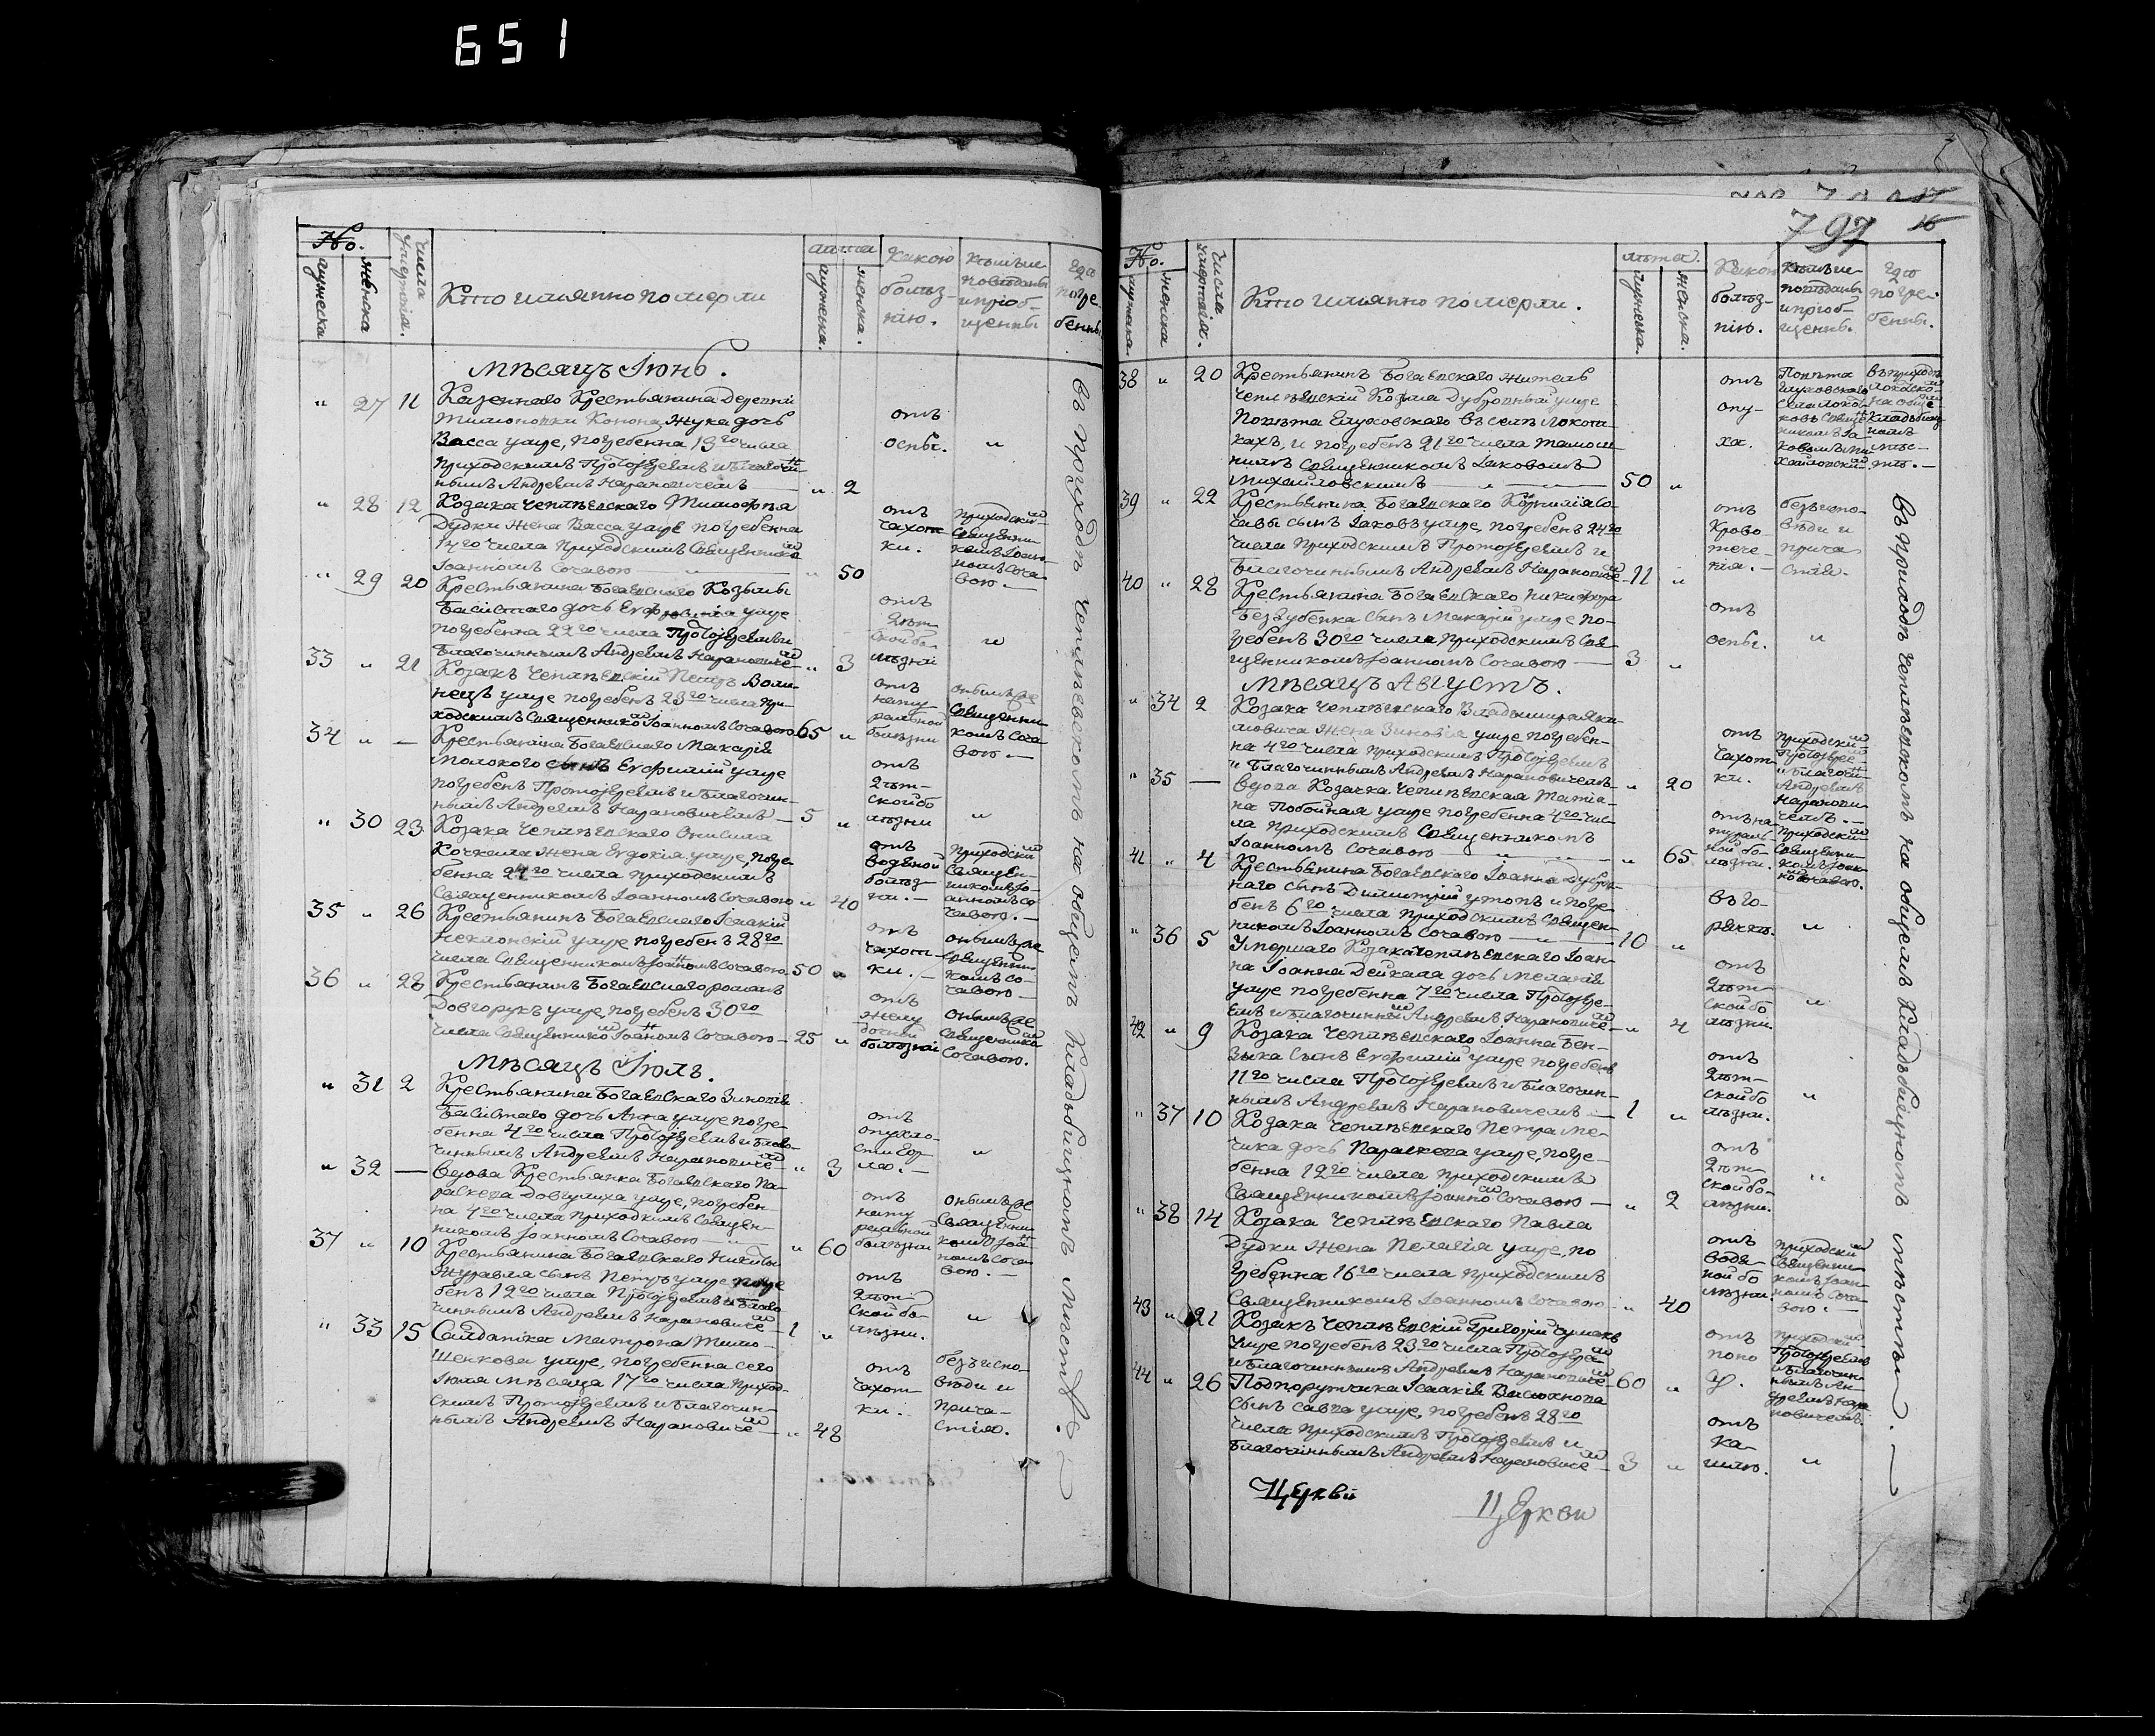 651
797
16
No.
мужеска
женска
Числа умертвія.
Кто имянно померли
лѣта
мужеска.
женска.
Какою болѣз-
нію.
Кѣмъ исповѣданы
и пріоб-
щенны
Гдѣ
погре-
бенны
Мѣсяцъ Іюнь.
" 27 11 Казеннаго Крестьянина деревни
Тимоновки Конона Жука дочь
Васса умре, погребенна 13го числа
приходскимъ Протоіереемъ и благочин-
нымъ Андреемъ Нарановичемъ — " 2
отъ
оспы.
"
" 28 12 Козака Чеплѣевскаго Тимофѣя
Дудки жена Васса умре погребенна
14го числа приходскимъ Священникомъ
Іоанномъ Сочавою — " 50
отъ
чахот-
ки.
приходскимъ
Священни-
комъ Іоан-
номъ Соча-
вою. —
" 29 20 Крестьянина Богаевскаго Козьмы
дочь Евфросинія умре
погребенна 22го числа Протоіереемъ и
благочиннымъ Андреемъ Нарановичемъ " 3
отъ
дѣт-
ской бо-
лѣзни
"
33 " 21 Козакъ Чеплѣевскій Петръ Воли-
нецъ умре погребенъ 23го числа при-
ходскимъ Священникомъ Іоанномъ Сочавою 65 "
отъ
нату-
ральной
болѣзни
онымъ же
Священни-
комъ Соча-
вою. —
34 " — Крестьянина Богаевскаго Макарія
сынъ Евфимій умре
погребенъ Протоіереемъ и благочин-
нымъ Андреемъ Нарановичемъ — 5 "
отъ
дѣт-
ской бо-
лѣзни
"
" 30 23 Козака Чеплѣевскаго Онисима
жена Евдокія умре, погре-
бенна 24го числа приходскимъ
Священникомъ Іоанномъ Сочавою " 40
отъ
водяной
болѣз-
ни. —
приходскимъ
Священ-
никомъ Іо-
анномъ Со-
чавою. —
35 " 26 Крестьянинъ Богаевскаго Ісаакій
Неклонскій умре погребенъ 28го
числа Священникомъ Іоанномъ Сочавою — 50 "
отъ
чахот-
ки. —
онымъ же
Священни-
комъ Со-
чавою —
36 " 28 Крестьянинъ Богаевскаго Романъ
Довгорукъ умре, погребенъ 30го
числа Священникомъ Іоанномъ Сочавою — 25 "
отъ
болѣзни
онымъ же
Священникомъ
Сочавою.
Мѣсяцъ Іюль.
" 31 2 Крестьянина Богаевскаго Зиновія
дочь Анна умре погре-
бенна 4го числа Протоіереемъ и благо-
чиннымъ Андреемъ Нарановичемъ — " 3
отъ
опухло-
сти гор-
ла. —
"
" 32 — Вдова Крестьянка Богаевскаго Па-
раскева Довгулиха умре, погребен-
на 4го числа приходскимъ Священ-
никомъ Іоанномъ Сочавою — " 60
отъ
нату-
ральной
болѣзни
онымъ же
Священни-
комъ Іоан-
номъ Соча-
вою. —
37 " 10 Крестьянина Богаевскаго Никиты
Журавля сынъ Петръ умре погре-
бенъ 12го числа Протоіереемъ и благо-
чиннымъ Андреемъ Нарановичемъ — 1 "
отъ
дѣт-
ской бо-
лѣзни.
"
" 33 15 Солдатка Матрона Тимо-
шенкова умре, погребенна сего
Іюля мѣсяца 17го числа приход-
скимъ Протоіереемъ и благочин-
нымъ Андреемъ Нарановичемъ — " 48
отъ
чахот-
ки.
безъ испо-
вѣди и
прича-
стія.
въ приходѣ Чеплѣевскомъ на общемъ кладьбищномъ мѣстѣ.
No.
мужеска.
женска
Числа умертвія.
Кто имянно померли.
лѣта.
мужеска.
женска.
Какою
болѣз-
нію.
Кѣмъ ис-
повѣданы
и пріоб-
щенны.
Гдѣ
погре-
бенны.
38 " 20 Крестьянинъ Богаевскаго житель
Чеплѣевскій Козьма Дубровный умре
Повѣта Глуховскаго въ селѣ Локот-
кахъ, и погребенъ 21го числа тамош-
нимъ Священникомъ Іаковомъ
Михайловскимъ — 50 "
отъ
опу-
ха.
Повѣта
Глуховскаго
села Локот-
ковъ Священ-
никомъ Іа-
ковомъ Ми-
хайловскимъ
въ приходѣ
на общемъ
кладьбищ-
номъ
мѣс-
тѣ. —
39 " 22 Крестьянина Богаевскаго Корнилія Со-
чавы сынъ Іаковъ умре, погребенъ 24го
числа приходскимъ Протоіереемъ и
благочиннымъ Андреемъ Нарановичемъ — 11 "
отъ
крово-
тече-
нія. —
безъ испо-
вѣди и
прича-
стія.
40 " 28 Крестьянина Богаевскаго Никифора
Беззубенка сынъ Макарій умре по-
гребенъ 30го числа приходскимъ Свя-
щенникомъ Іоанномъ Сочавою — 3 "
отъ
оспы.
"
Мѣсяцъ Августъ.
" 34 2 Козака Чеплѣевскаго Владимира Яки-
мовича жена Зиновія умре погребен-
на 4го числа приходскимъ Протоіереемъ
и благочиннымъ Андреемъ Нарановичемъ — " 20
отъ
чахот-
ки.
приходскимъ
Протоіере-
емъ и благочин-
Андреемъ
Наранови-
чемъ. —
" 35 — Вдова Козачка Чеплѣевская Татіа-
на Побойная умре погребенна 4го чис-
ла приходскимъ Священникомъ
Іоанномъ Сочавою — " 65
отъ на-
тураль-
ной бо-
лѣзни.
приходскимъ
Священни-
комъ Іоан-
номъ Сочавою.
41 " 4 Крестьянина Богаевскаго Іоанна Дубров-
наго сынъ Димитрій утопъ и погре-
бенъ 6го числа приходскимъ Священ-
никомъ Іоанномъ Сочавою — 10 "
въ го-
рячкѣ.
"
" 36 5 Умершаго Козака Чеплѣевскаго Іоан-
на Іоанна Дейкала дочь Меланія
умре погребенна 7го числа Протоіере-
емъ и благочиннымъ Андреемъ Нарановичемъ — " 4
отъ
дѣт-
ской бо-
лѣзни.
"
42 " 9 Козака Чеплѣевскаго Іоанна Бен-
зыка сынъ Евфимій умре погребенъ
11го числа Протоіереемъ и благочин-
нымъ Андреемъ Нарановичемъ — 1 "
отъ
дѣт-
ской бо-
лѣзни.
"
" 37 10 Козака Чеплѣевскаго Петра Ме-
чика дочь Параскева умре, погре-
бенна 12го числа приходскимъ
Священникомъ Іоанномъ Сочавою — " 2
отъ
дѣт-
ской бо-
лѣзни.
"
" 38 14 Козака Чеплѣевскаго Павла
Дудки жена Пелагія умре, по
гребенна 16го числа приходскимъ
Священникомъ Іоанномъ Сочавою — " 40
отъ
водя-
ной бо-
лѣзни.
приходскимъ
Священни-
комъ Іоан-
номъ Соча-
вою. —
43 " 21 Козакъ Чеплѣевскій Григорій Чумакъ
умре погребенъ 23го числа Протоіереемъ
и благочиннымъ Андреемъ Нарановичемъ 60 "
отъ
поно
су.
приходскимъ
Протоіереемъ
и благочин-
нымъ Ан-
дреемъ Нара-
новичемъ.
44 " 26 Подпорутчика Ісаакія
сынъ Савва умре, погребенъ 28го
числа приходскимъ Протоіереемъ и
благочиннымъ Андреемъ Нарановичемъ — 3 "
отъ
ка-
шлю.
"
въ приходѣ Чеплѣевскомъ на общемъ кладьбищномъ мѣстѣ. —
Церкви
Церкви